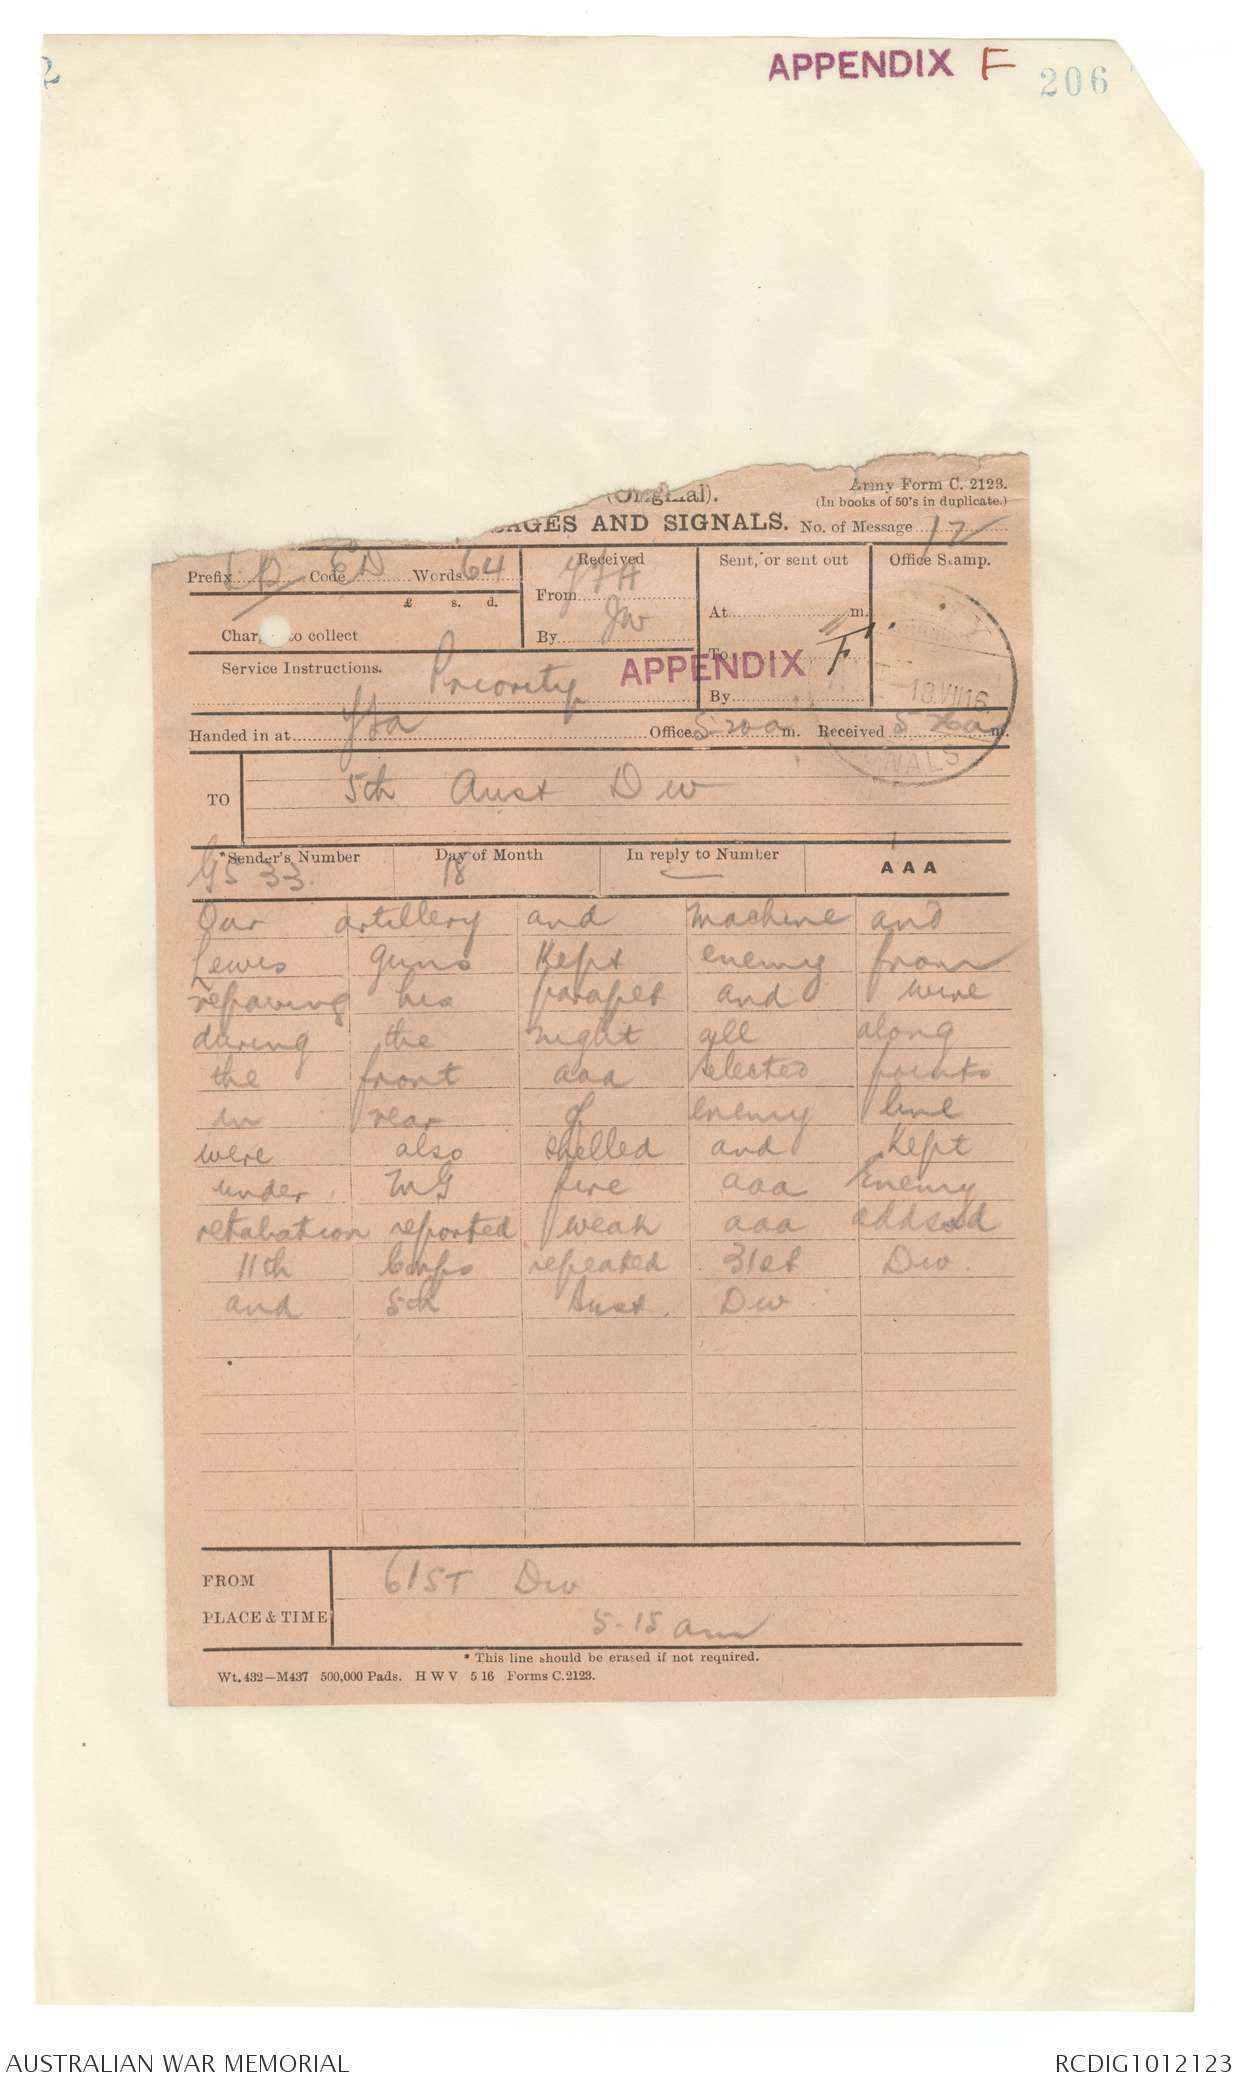 APPENDIX F
206
2
(Original).
Army Form C. 2123.
(In books of 50's in duplicate.)
AGES AND SIGNALS. No. of Message 12
Prefix Code ED Words 64
Received
Sent, or sent out
Office Stamp.
£ s. d.
From YFA
At m.
Charges to collect
By JW
To
Service Instructions. Priority
APPENDIX F
By
18 VII 16
Handed in at YFA Office 5-20 a m. Received 5 26 a m.
NALS
TO 5th Aust Div
*Sender's Number Day of Month In reply to Number AAA
GS 33. 18 —
Our artillery and machine and
Lewis guns Kept enemy from
repairing his parapet and wire
during the night all along
the front aaa selected points
in rear of enemy line
were also shelled and Kept
under MG fire aaa Enemy
retaliation reported weak aaa addsd
11th Corps repeated 31st Div.
and 5th Aust. Div
FROM 61ST Div
PLACE & TIME 5-15 am
* This line should be erased if not required.
Wt. 432—M437 500,000 Pads. H W V 5 16 Forms C.2123.
AUSTRALIAN WAR MEMORIAL RCDIG1012123